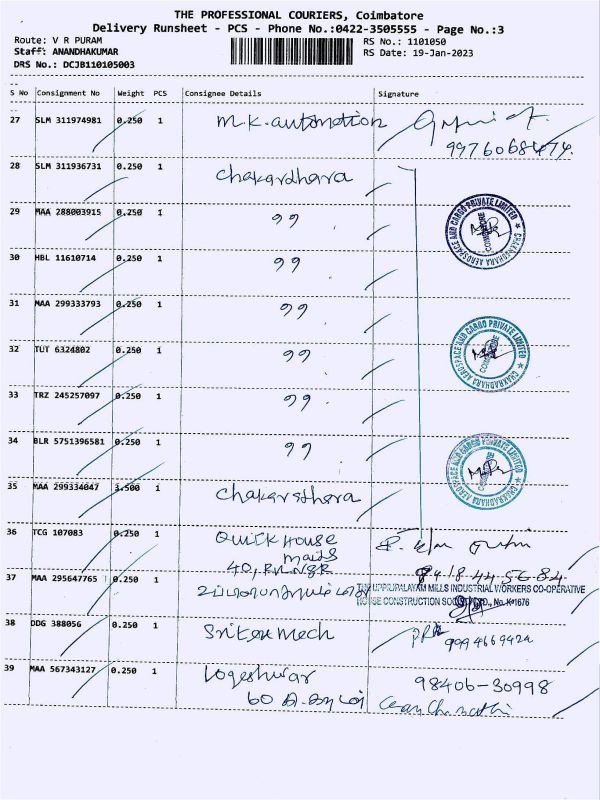 THE PROFESSIONAL COURIERS, Coimbatore
Delivery Runsheet - PCS - Phone No.:0422-3505555 - Page No.:3
Route: V R PURAM
RS No.: 1101050
Staff: ANANDHAKUMAR
RS Date: 19-Jan-2023
DRS No.: DCJB110105003
S No Consignment No Weight PCS Consignee Details Signature
27 SLM 311974981 0.250 1 M.K. automation
9976068474.
28 SLM 311936731 0.250 1 Chakardhara
29 MAA 288003915 0.250 1 "
30 HBL 11610714 0.250 1 "
31 MAA 299333793 0.250 1 "
32 TUT 6324802 0.250 1 "
33 TRZ 245257097 0.250 1 "
34 BLR 5751396581 0.250 1 "
CHAKRADHARA AEROSPACE AND CARGO PRIVATE LIMITED
COIMBATORE
CHAKRADHARA AEROSPACE AND CARGO PRIVATE LIMITED
COIMBATORE
CHAKRADHARA AEROSPACE AND CARGO PRIVATE LIMITED
35 MAA 299334047 3.500 1 Chakarsthara
36 TCG 107083 0.250 1 Quick House
maids
40,
37 MAA 295647765 0.250 1
THE UPPILIPALAYAM MILLS INDUSTRIAL WORKERS CO-OPERATIVE
HOUSE CONSTRUCTION LTD., No. K1676
38 DDG 388056 0.250 1 Sritek Mech
39 MAA 567343127 0.250 1 Logeshwar
98406-30998
60